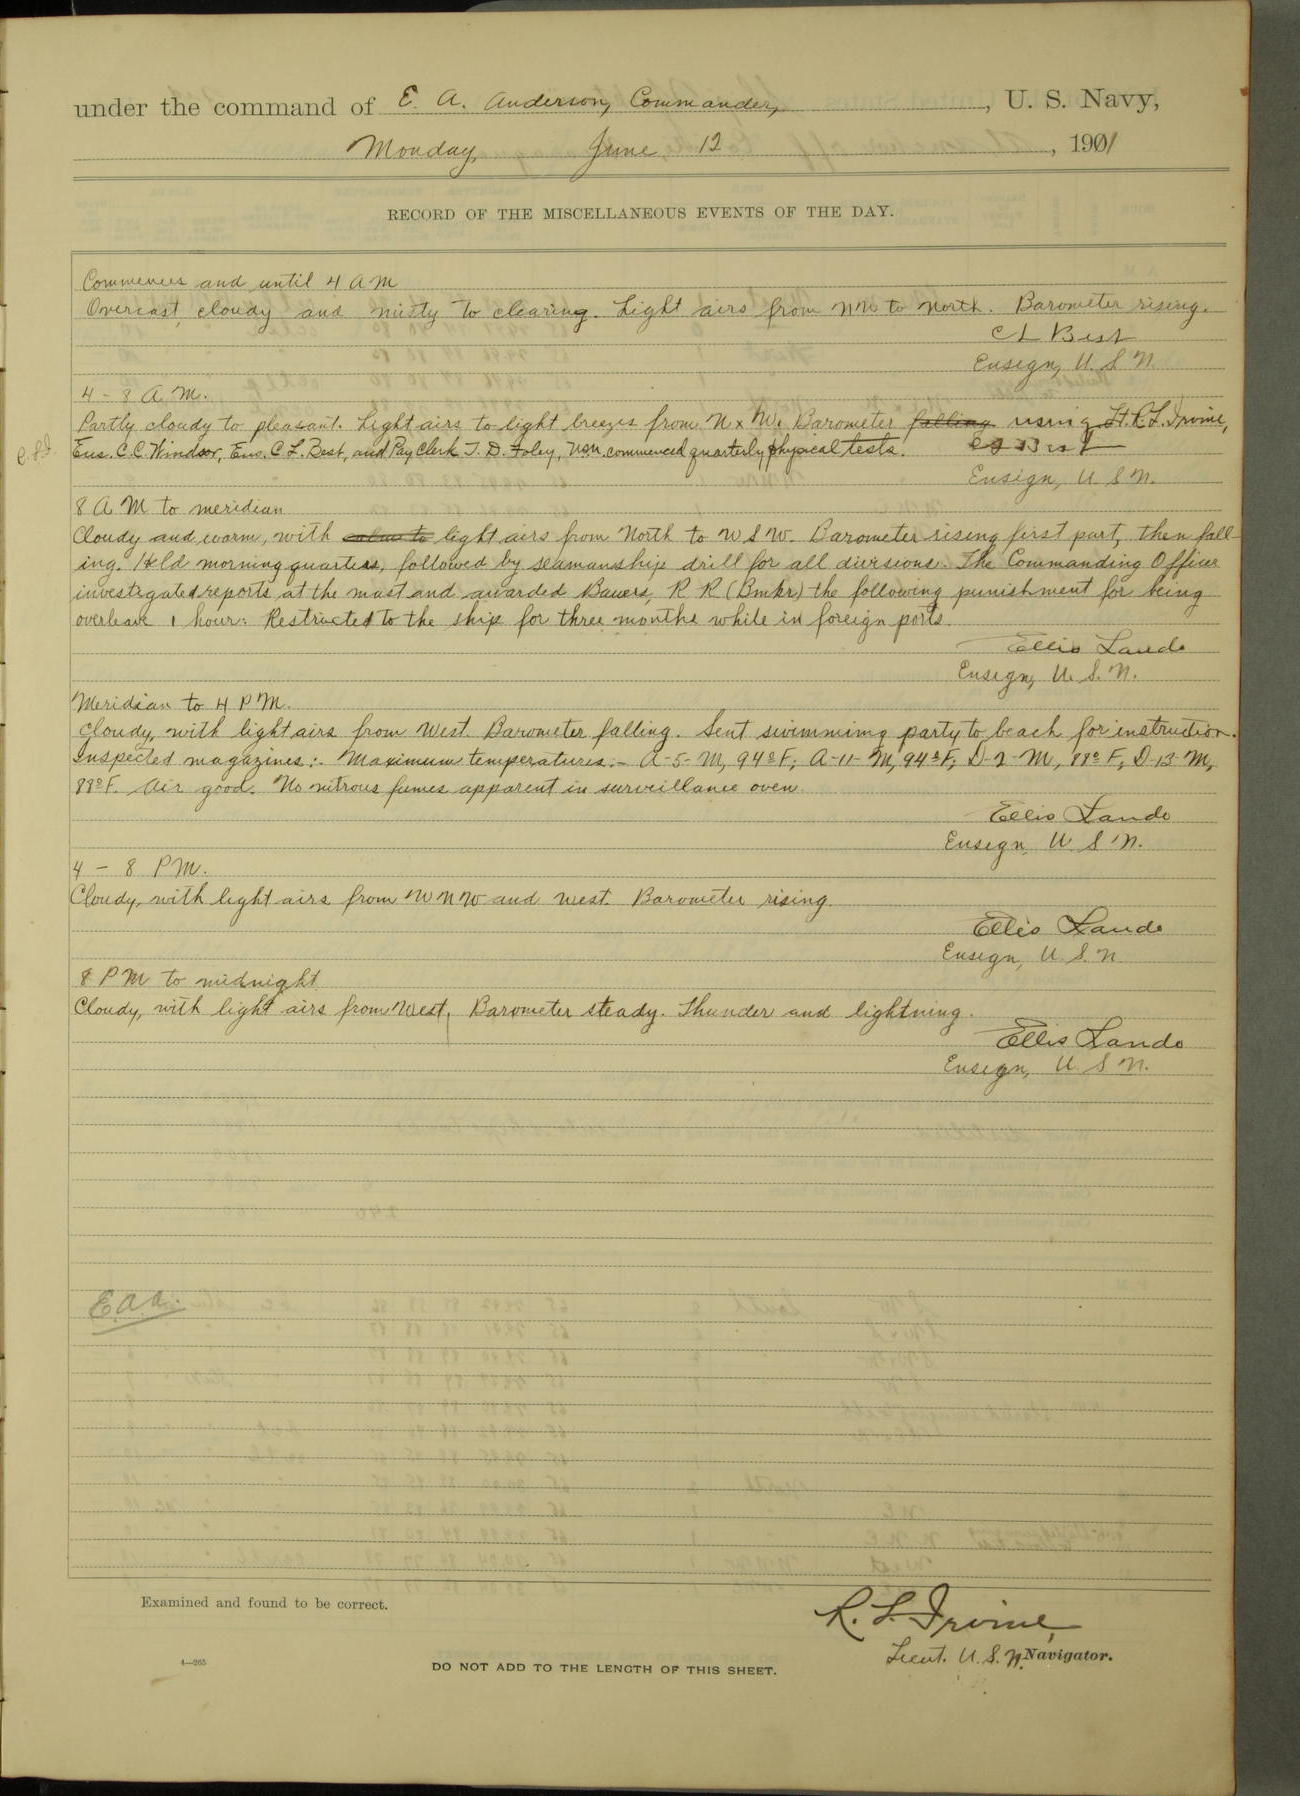 under the command of E. A. Anderson, Commander, , U. S. Navy,
Monday, June 12 , 1901
RECORD OF THE MISCELLANEOUS EVENTS OF THE DAY.
Commences and until 4 A M
Overcast, cloudy and misty to clearing. Light airs from NW to North. Barometer rising.
C L Best
Ensign, U. S N.
4 - 8 A. M.
Partly cloudy to pleasant. Light airs to light breezes from N x W. Barometer falling rising Lt. R. L. Irvine,
Ens. C. C. Windsor, Ens. C. L. Best, and Pay Clerk T. D. Foley, USN. commenced quarterly physical tests. C L Best
Ensign, U. S N.
8 A M to meridian
Cloudy and warm, with calms to light airs from North to W S W. Barometer rising first part, then fall-
ing. Held morning quarters, followed by seamanship drill for all divisions. The Commanding Officer
investigated reports at the mast and awarded Bauers, R R (Bmkr) the following punishment for being
overleave 1 hour: Restricted to the ship for three months while in foreign ports.
Ellis Lando
Ensign, U. S. N.
Meridian to 4 P M.
Cloudy, with light airs from West. Barometer falling. Sent swimming party to beach for instruction.
Inspected magazines:- Maximum temperatures:- A-5-M, 94° F; A-11-M, 94° F; D-2-M, 88° F, D-13-M,
88° F. Air good. No nitrous fumes apparent in surveillance oven.
Ellis Lando
Ensign, U S N.
4 - 8 P M.
Cloudy, with light airs from W N W and west. Barometer rising.
Ellis Lando
Ensign, U. S. N
8 P M to midnight
Cloudy, with light airs from West, Barometer steady. Thunder and lightning.
Ellis Lando
Ensign, U. S N.
E. A. A.
Examined and found to be correct.
R. L. Irvine,
Lieut. U. S. N. Navigator.
4—265
DO NOT ADD TO THE LENGTH OF THIS SHEET.